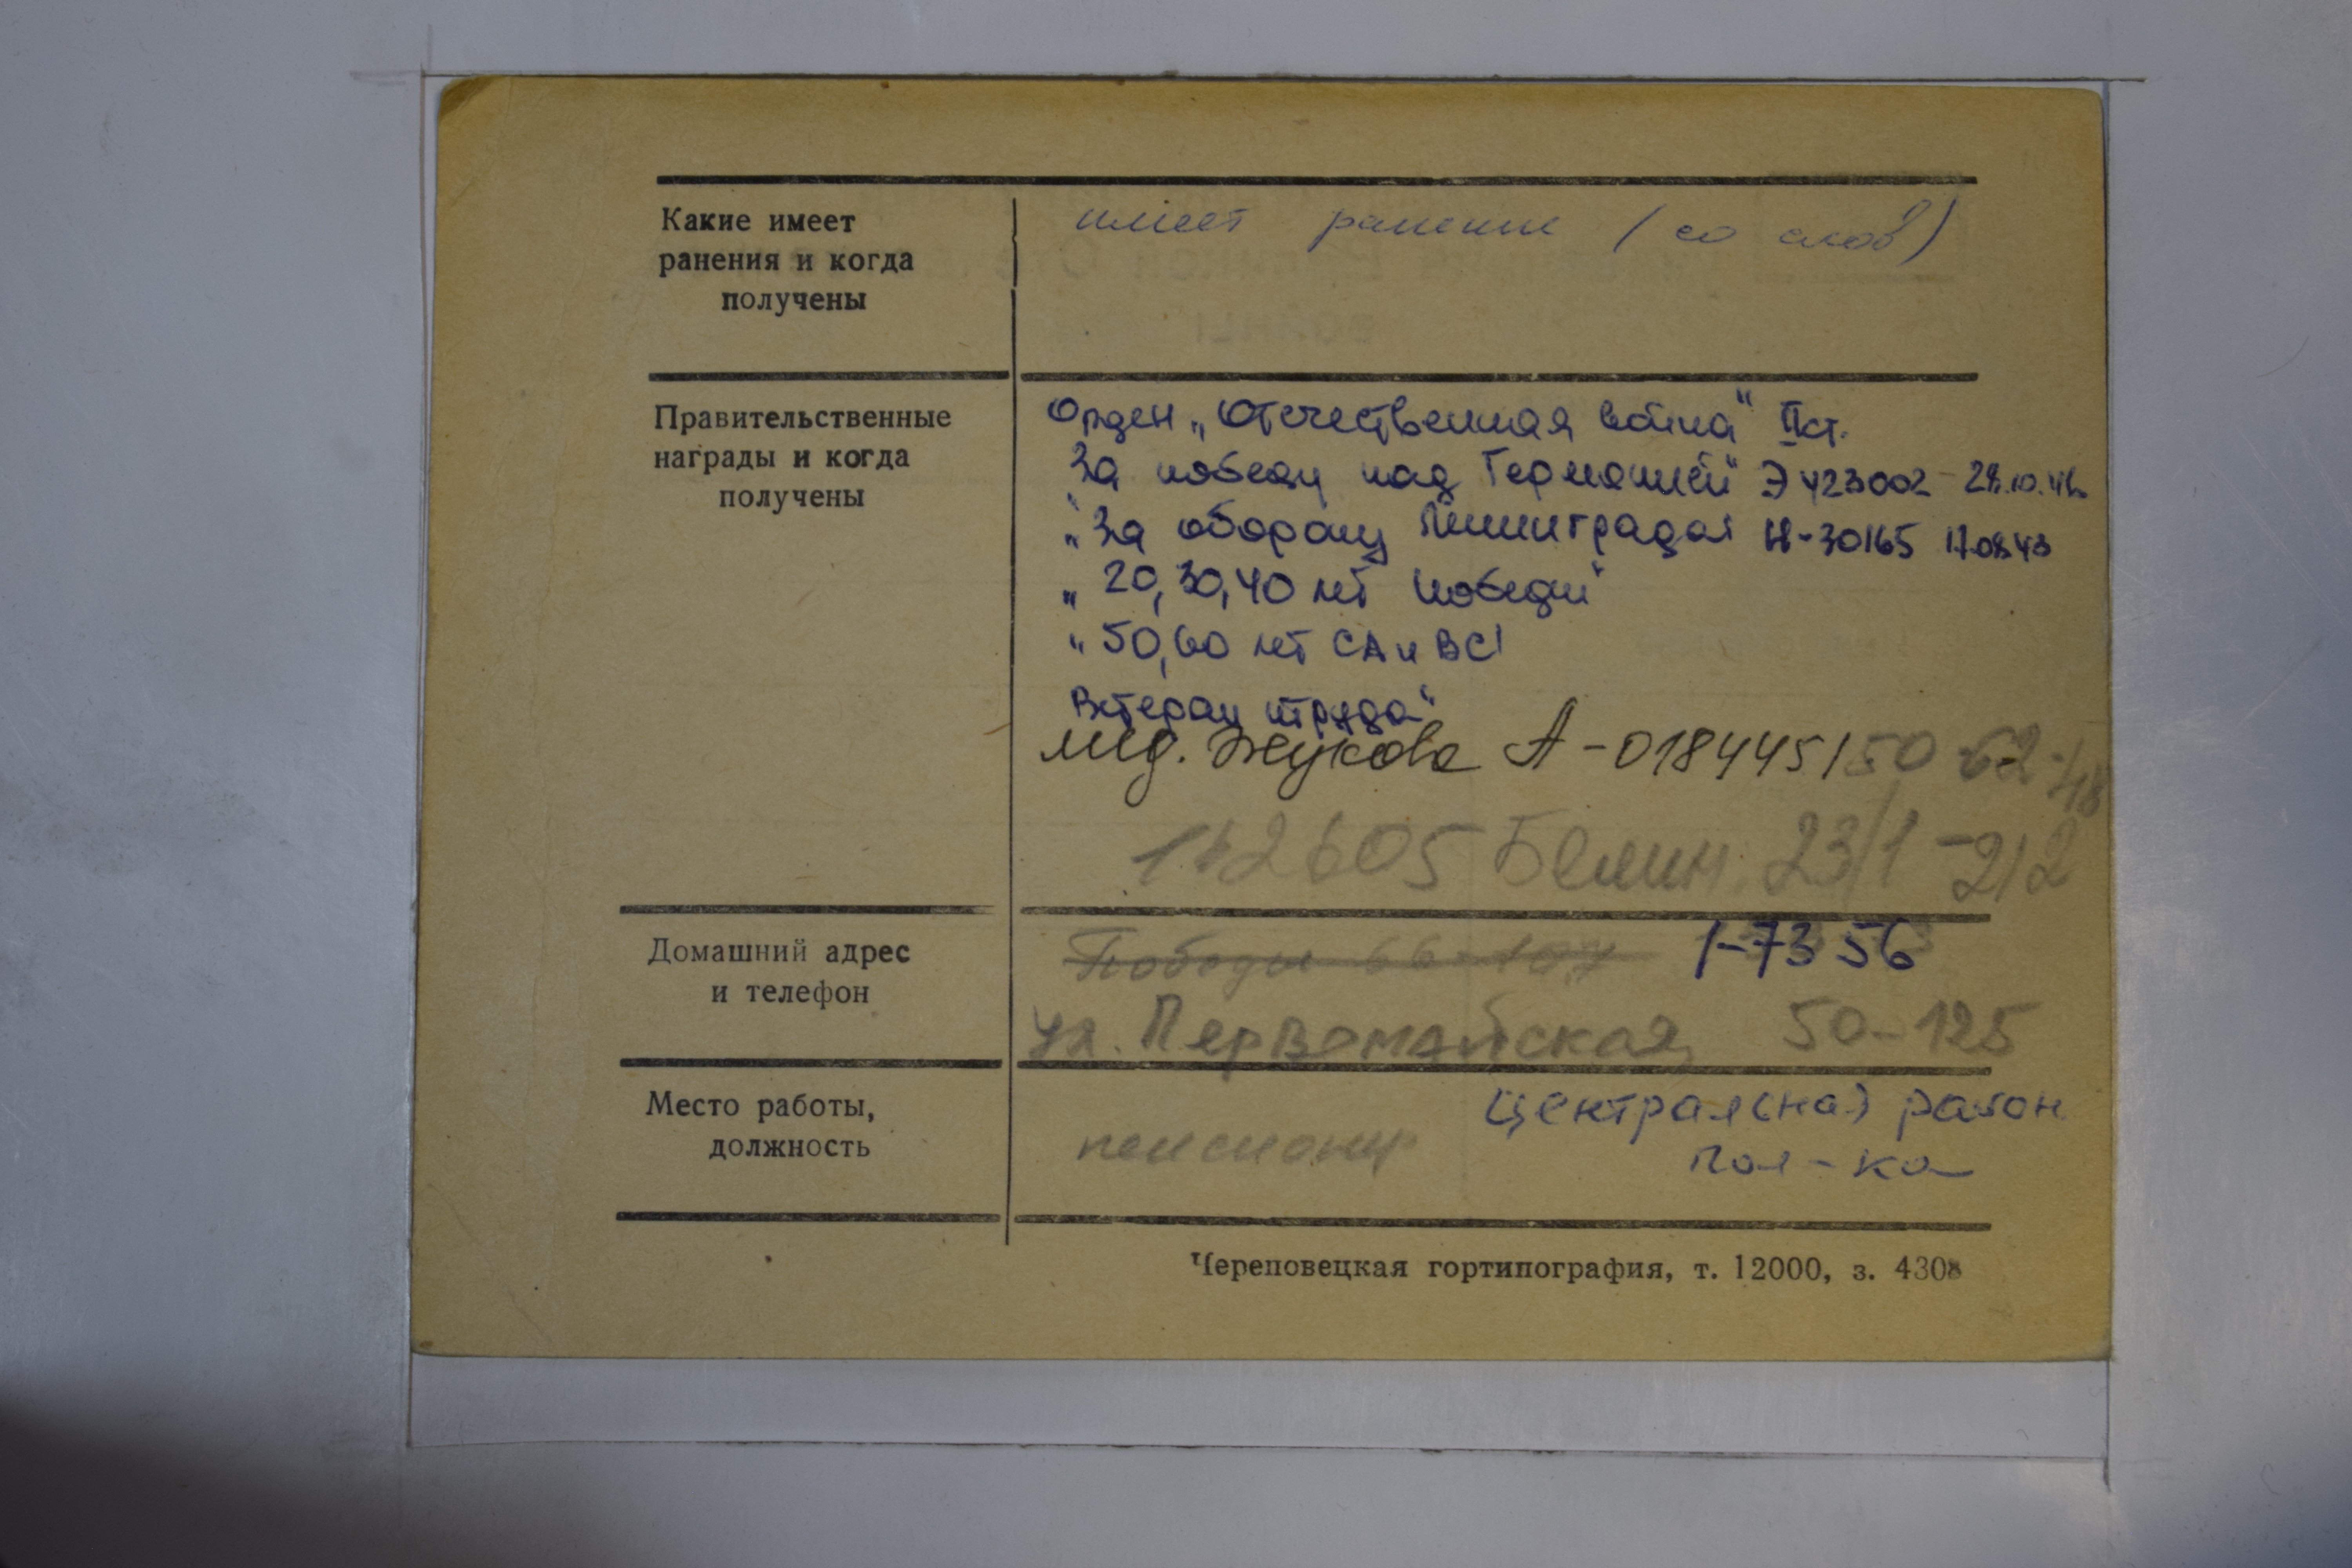 Какие имеет
ранения и когда
получены
имеет ранение (со слов)
Правительственные
награды и когда
получены
Орден „Отечественная война" II ст.
"За победу над Германией" Э 423002 - 28.10.46
"За оборону Ленинграда" Н-30165 17.08.43
„ 20, 30, 40 лет победы"
" 50, 60 лет СА и ВС"
Ветеран труда"
мед. Жукова А-0184451 50-62-48
162605 Белин. 23/1-212
Домашний адрес
и телефон
Победы 66-107 1-73 56
ул. Первомайская 50-125
Место работы,
должность
пенсионер
Централ(ная) район
пол-ка
Череповецкая гортипография, т. 12000, з. 4308